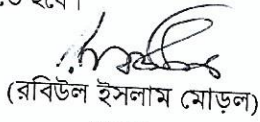 হবে।
(রবিউল ইসলাম মোড়ল)